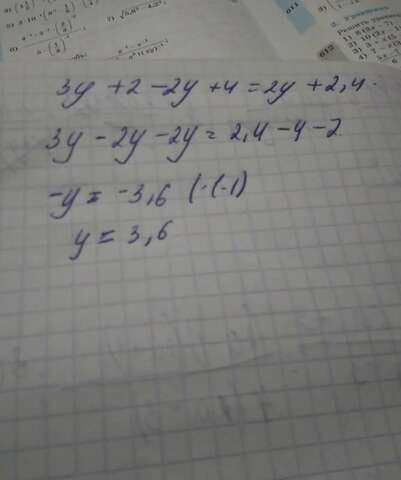 3y + 2 - 2y + 4 = 2y + 2,4.
3y - 2y - 2y = 2,4 - 4 - 2
-y = -3,6 (·(-1)
y = 3,6